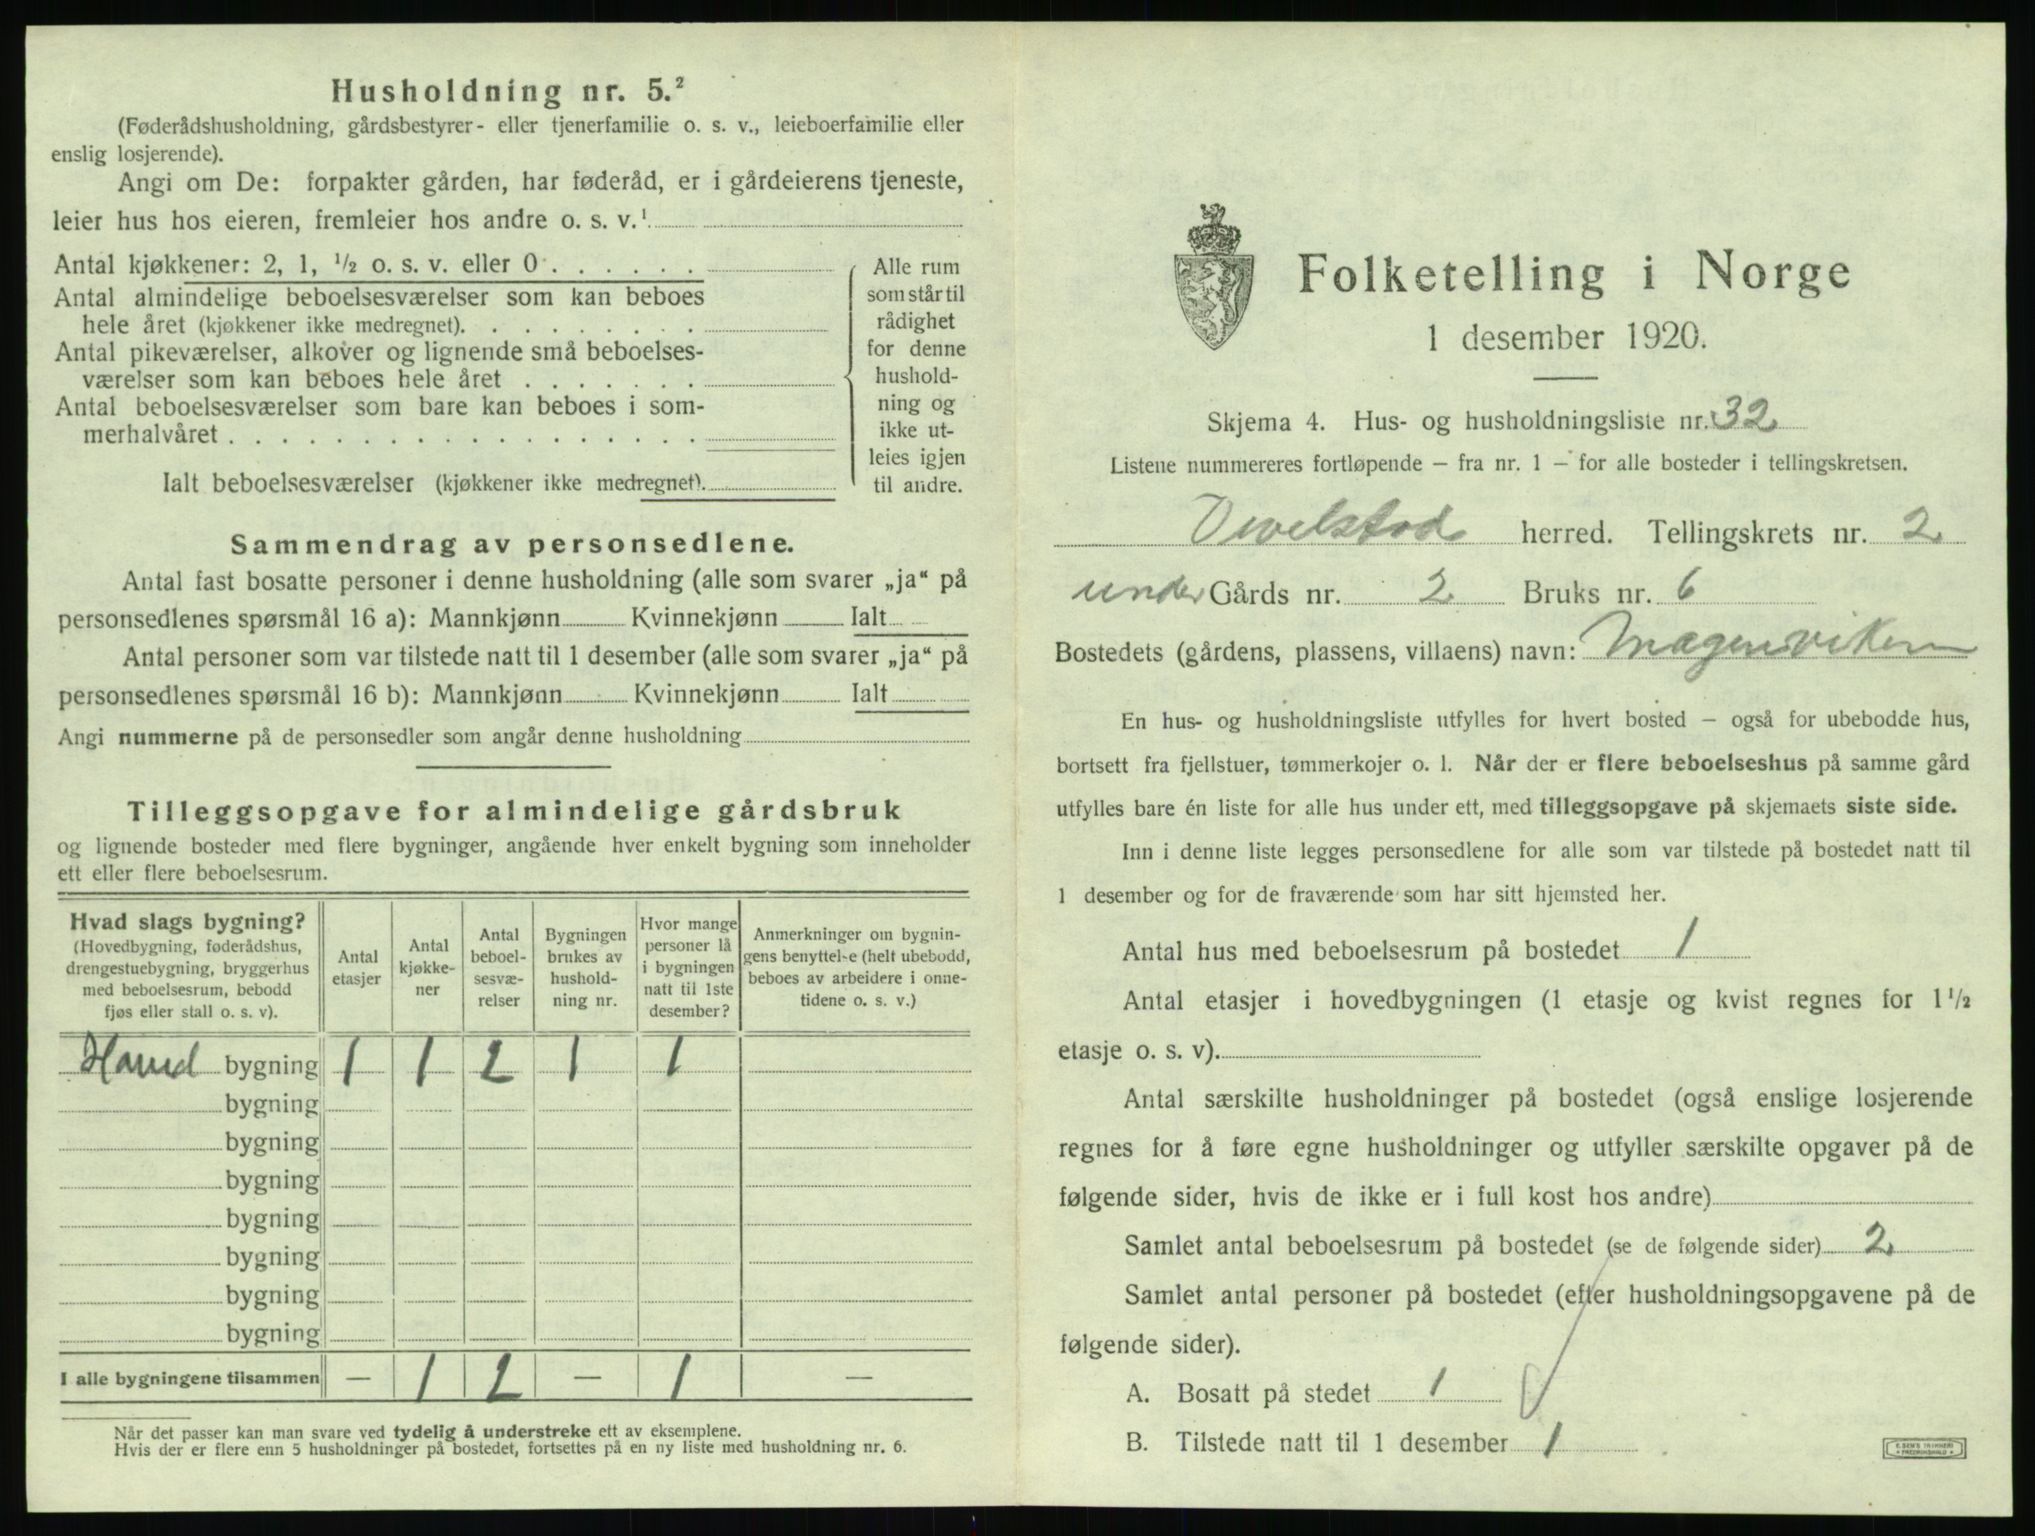 Husholdning nr. 5.²
(Føderådshusholdning, gårdsbestyrer- eller tjenerfamilie o. s. v., leieboerfamilie eller
enslig losjerende).
Angi om De: forpakter gården, har føderåd, er i gårdeierens tjeneste,
leier hus hos eieren, fremleier hos andre o. s. v.¹
Antal kjøkkener: 2, 1, ½ o. s. v. eller 0 . . . . . .
Antal almindelige beboelsesværelser som kan beboes
hele året (kjøkkener ikke medregnet). . . . . . . . .
Antal pikeværelser, alkover og lignende små beboelses-
værelser som kan beboes hele året . . . . . . .
Antal beboelsesværelser som bare kan beboes i som-
merhalvåret . . . . . . . . . . . . . . . . . .
Ialt beboelsesværelser (kjøkkener ikke medregnet).
Alle rum
som står til
rådighet
for denne
hushold-
ning og
ikke ut-
leies igjen
til andre.
Sammendrag av personsedlene.
Antal fast bosatte personer i denne husholdning (alle som svarer „ja“ på
personsedlenes spørsmål 16 a): Mannkjønn Kvinnekjønn Ialt
Antal personer som var tilstede natt til 1 desember (alle som svarer „ja“ på
personsedlenes spørsmål 16 b): Mannkjønn Kvinnekjønn Ialt
Angi nummerne på de personsedler som angår denne husholdning
Tilleggsopgave for almindelige gårdsbruk
og lignende bosteder med flere bygninger, angående hver enkelt bygning som inneholder
ett eller flere beboelsesrum.
Hvad slags bygning?
(Hovedbygning, føderådshus,
drengestuebygning, bryggerhus
med beboelsesrum, bebodd
fjøs eller stall o. s. v).
Antal
etasjer
Antal
kjøkke-
ner
Antal
beboel-
sesvæ-
relser
Bygningen
brukes av
hushold-
ning nr.
Hvor mange
personer lå
i bygningen
natt til 1ste
desember?
Anmerkninger om bygnin-
gens benyttelse (helt ubebodd,
beboes av arbeidere i onne-
tidene o. s. v.)
Hoved bygning 1 1 2 1 1
bygning
bygning
bygning
bygning
bygning
bygning
bygning
I alle bygningene tilsammen — 1 2 — 1 —
Når det passer kan man svare ved tydelig å understreke ett av eksemplene.
Hvis der er flere enn 5 husholdninger på bostedet, fortsettes på en ny liste med husholdning nr. 6.
Folketelling i Norge
1 desember 1920.
Skjema 4. Hus- og husholdningsliste nr. 32
Listene nummereres fortløpende – fra nr. 1 – for alle bosteder i tellingskretsen.
Vevelstad herred. Tellingskrets nr. 2
under Gårds nr. 2 Bruks nr. 6
Bostedets (gårdens, plassens, villaens) navn: Magensviken
En hus- og husholdningsliste utfylles for hvert bosted – også for ubebodde hus,
bortsett fra fjellstuer, tømmerkojer o. l. Når der er flere beboelseshus på samme gård
utfylles bare én liste for alle hus under ett, med tilleggsopgave på skjemaets siste side.
Inn i denne liste legges personsedlene for alle som var tilstede på bostedet natt til
1 desember og for de fraværende som har sitt hjemsted her.
Antal hus med beboelsesrum på bostedet 1
Antal etasjer i hovedbygningen (1 etasje og kvist regnes for 1 ½
etasje o. s. v).
Antal særskilte husholdninger på bostedet (også enslige losjerende
regnes for å føre egne husholdninger og utfyller særskilte opgaver på de
følgende sider, hvis de ikke er i full kost hos andre)
Samlet antal beboelsesrum på bostedet (se de følgende sider) 2
Samlet antal personer på bostedet (efter husholdningsopgavene på de
følgende sider).
A. Bosatt på stedet 1
B. Tilstede natt til 1 desember 1